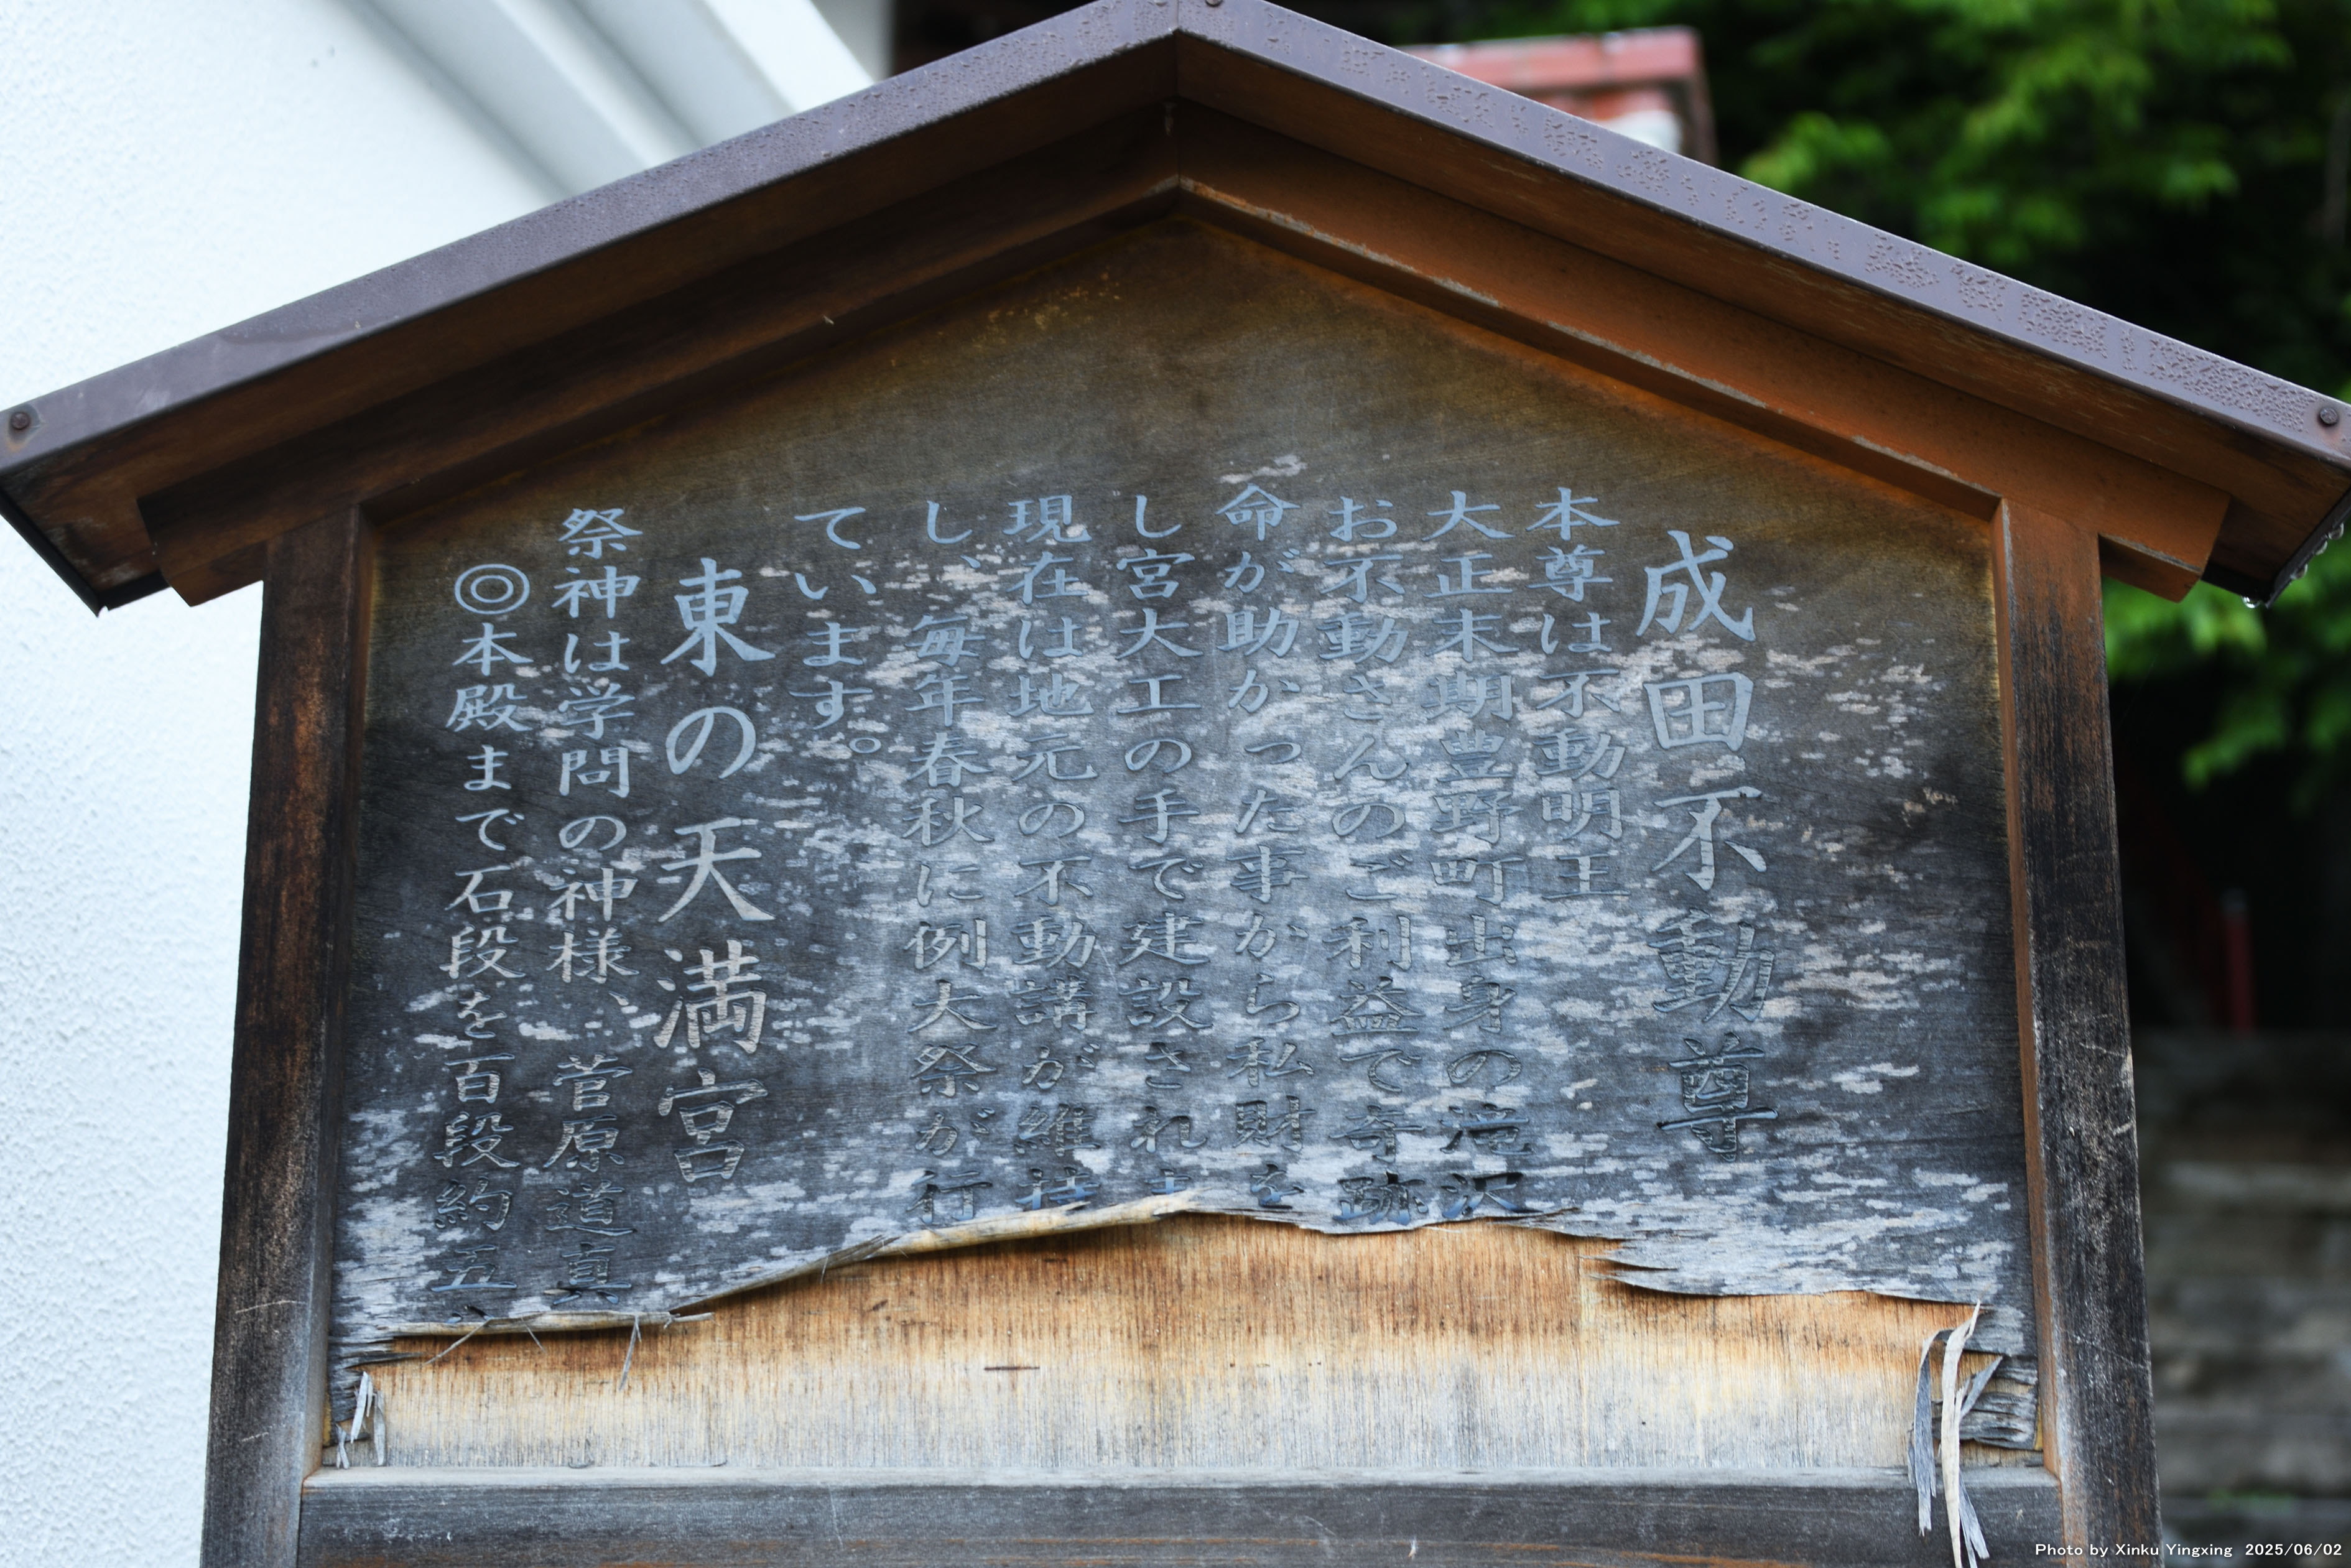 成田不動尊
本尊は不動明王
大正末期豊野町出身の滝沢
お不動さんのご利益で奇跡
命が助かった事から私財を
し宮大工の手で建設されま
現在は地元の不動講が維持
し、毎年春秋に例大祭が行
ています。
東の天満宮
祭神は学問の神様、菅原道真
◎本殿まで石段を百段約五
Photo by Xinku Yingxing 2025/06/02